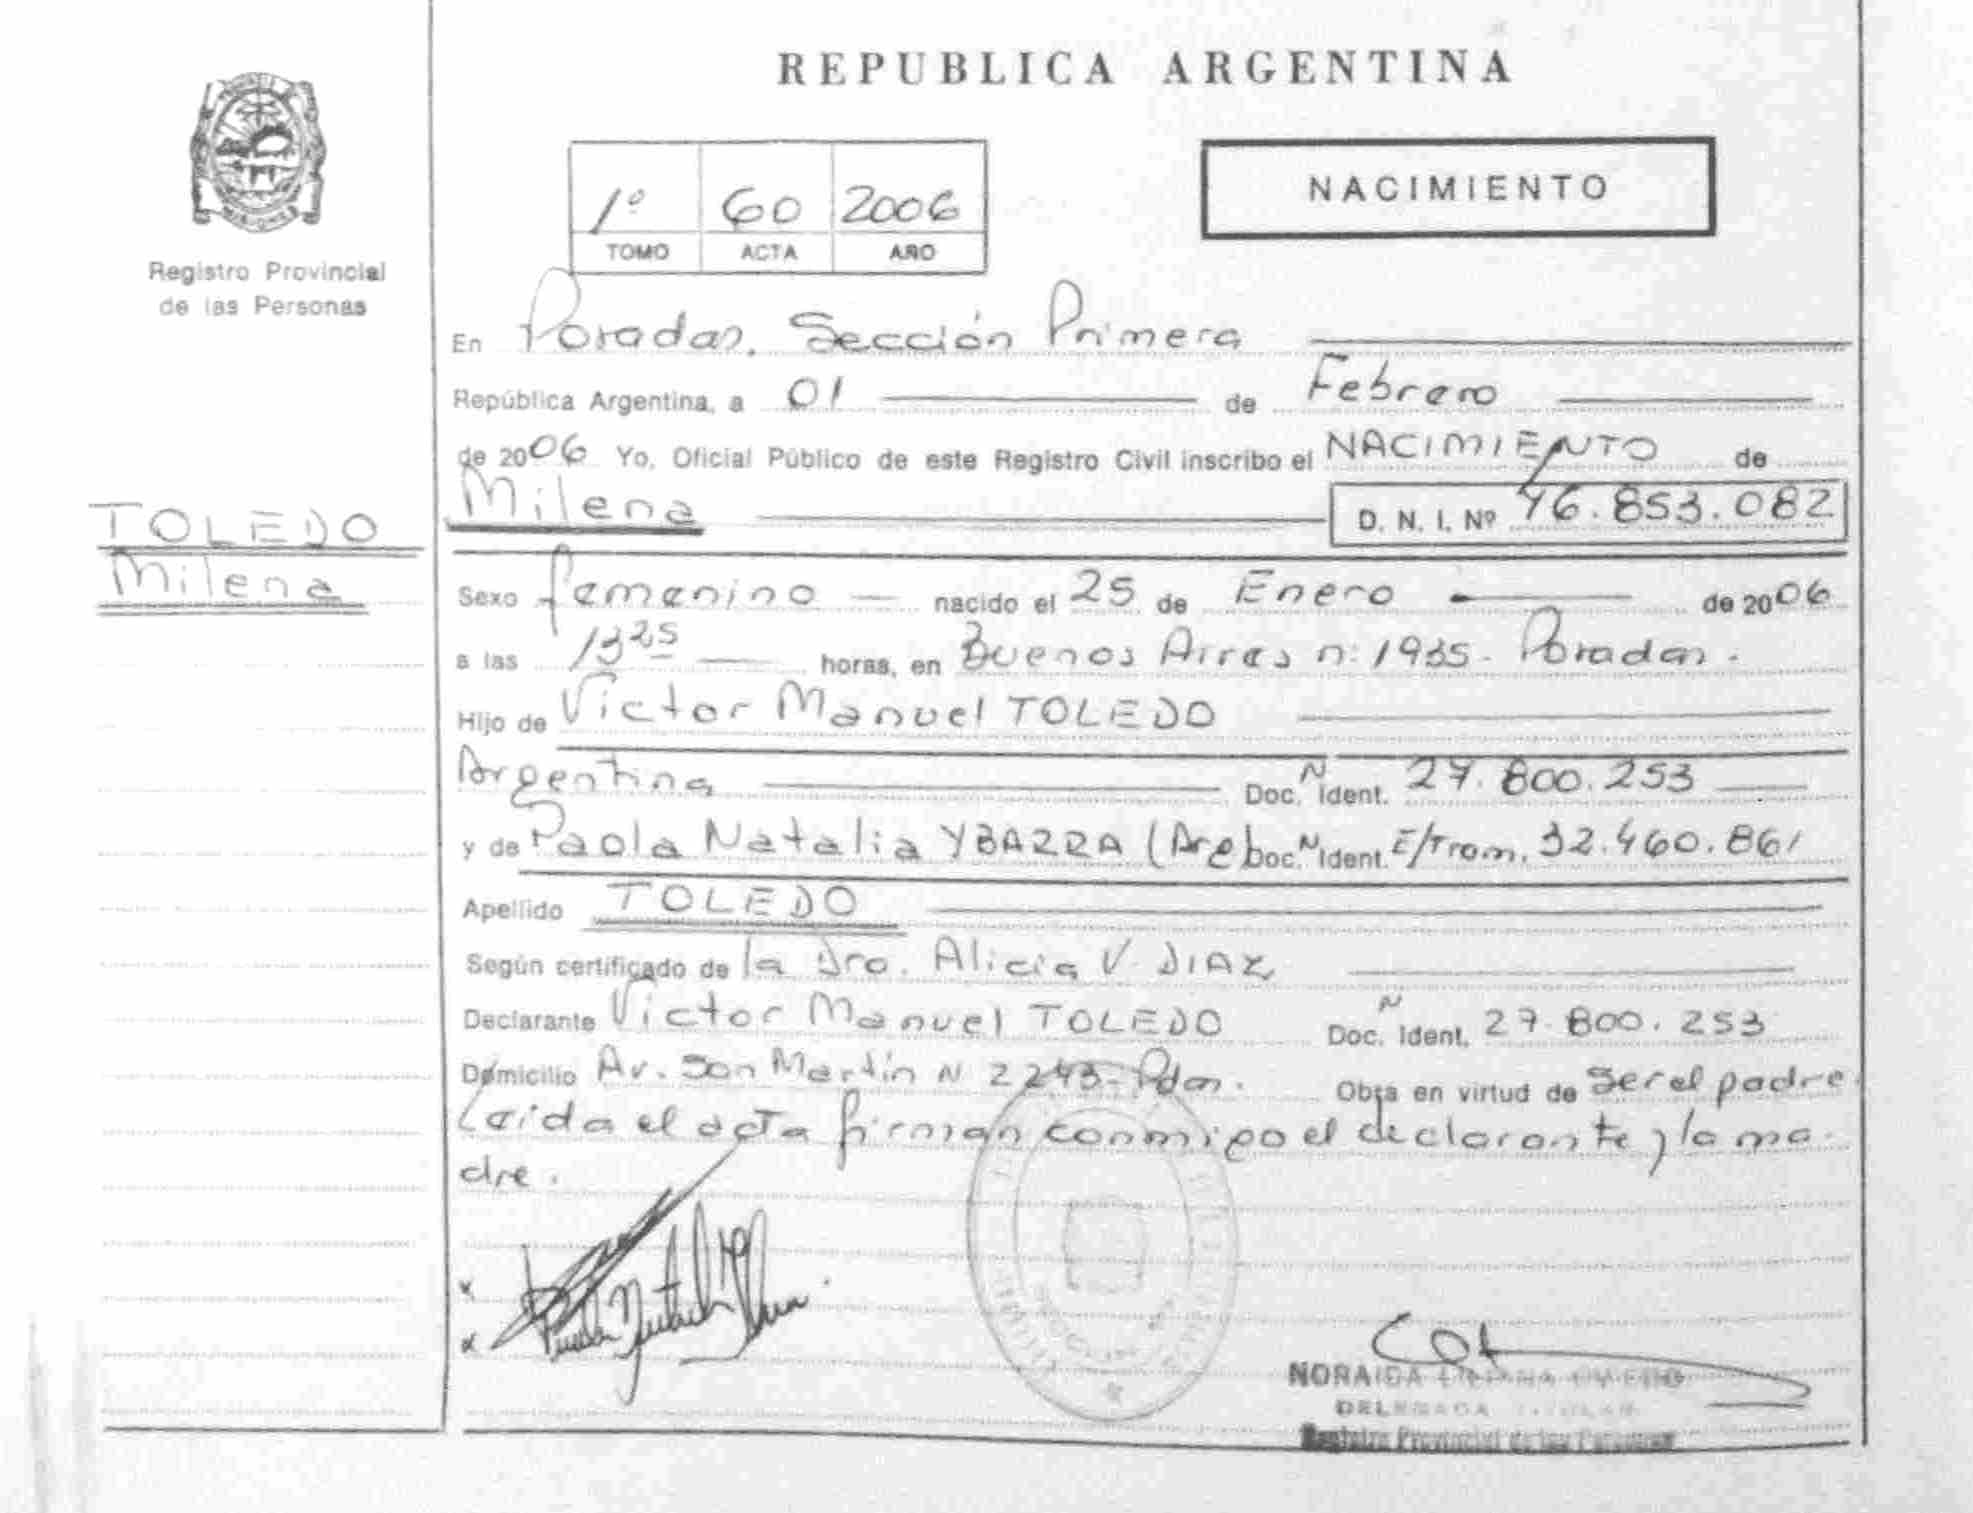 REPUBLICA ARGENTINA
NACIMIENTO
1º 60 2006
TOMO ACTA AÑO
Registro Provincial
de las Personas
En Posadas, Sección Primera
República Argentina, a 01 de Febrero
de 2006 Yo, Oficial Público de este Registro Civil inscribo el NACIMIENTO de
Milena D. N. I. Nº 46.853.082
TOLEDO
Milena
Sexo femenino nacido el 25 de Enero de 2006
a las 13 25 horas, en Buenos Aires n: 1935 - Posadas.
Hijo de Victor Manuel TOLEDO
Argentina Doc. N Ident. 27.800.253
y de Paola Natalia YBARRA (Arg Doc. N Ident. E/Tram. 32.460.861
Apellido TOLEDO
Según certificado de la Dra. Alicia V. DIAZ
Declarante Victor Manuel TOLEDO Doc. N Ident. 27.800.253
Domicilio Av. San Martín N 2243 - Pdas. Obra en virtud de ser el padre
Leida el acta firman conmigo el declarante y la ma-
dre.
NORAIDA
DELEGADA TITULAR
Registro Provincial de las Personas